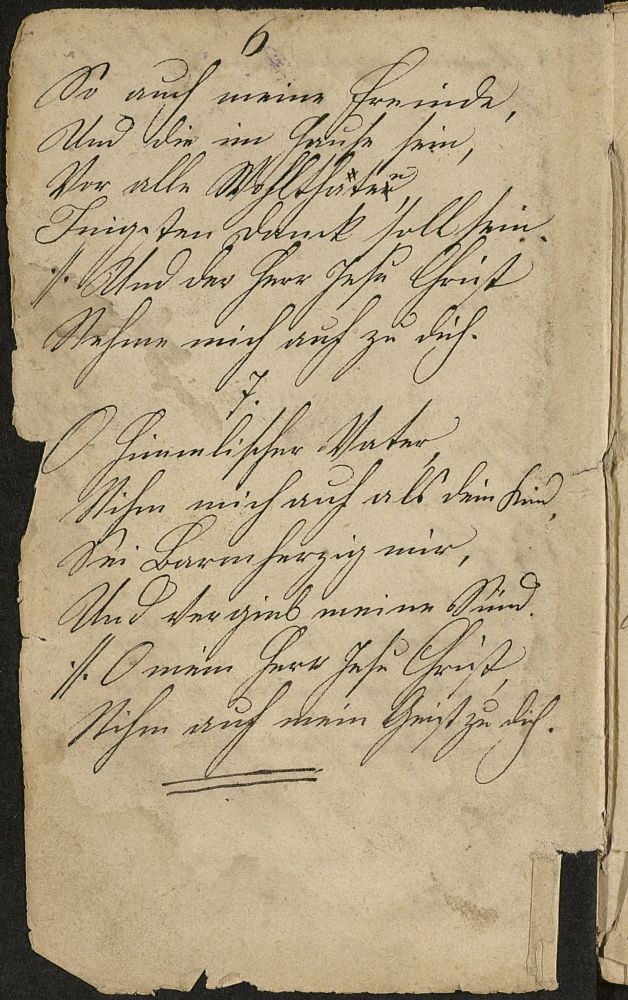 6
So auch meine Freunde,
Und die im Hause sein,
Vor alle Wohlthäter,
Inigsten Danck soll sein.
:/: Und der Herr Jesu Christ
Nehme mich auf zu dich.
7.
O Himmlischer Vater,
Nihm mich auf als dein Kind,
Sei Barmherzig mir,
Und vergieb meine Sünd.
:/: O mein Herr Jesu Christ,
Nihm auf mein Geist zu dich.